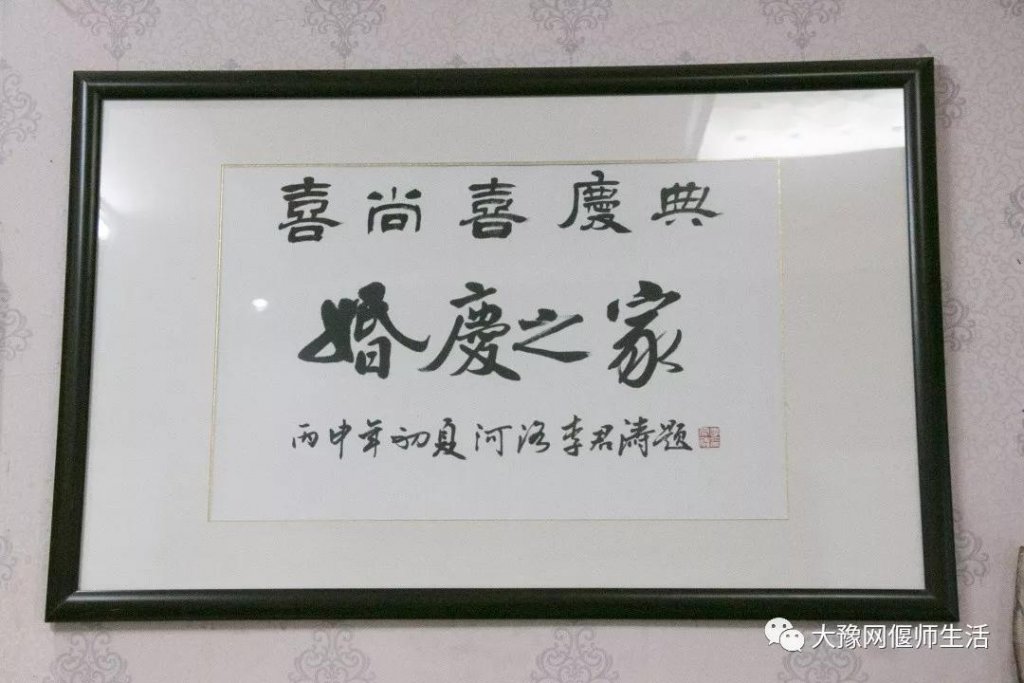 喜尚喜慶典
婚慶之家
丙申年初夏河洛李君涛题
大豫网偃师生活